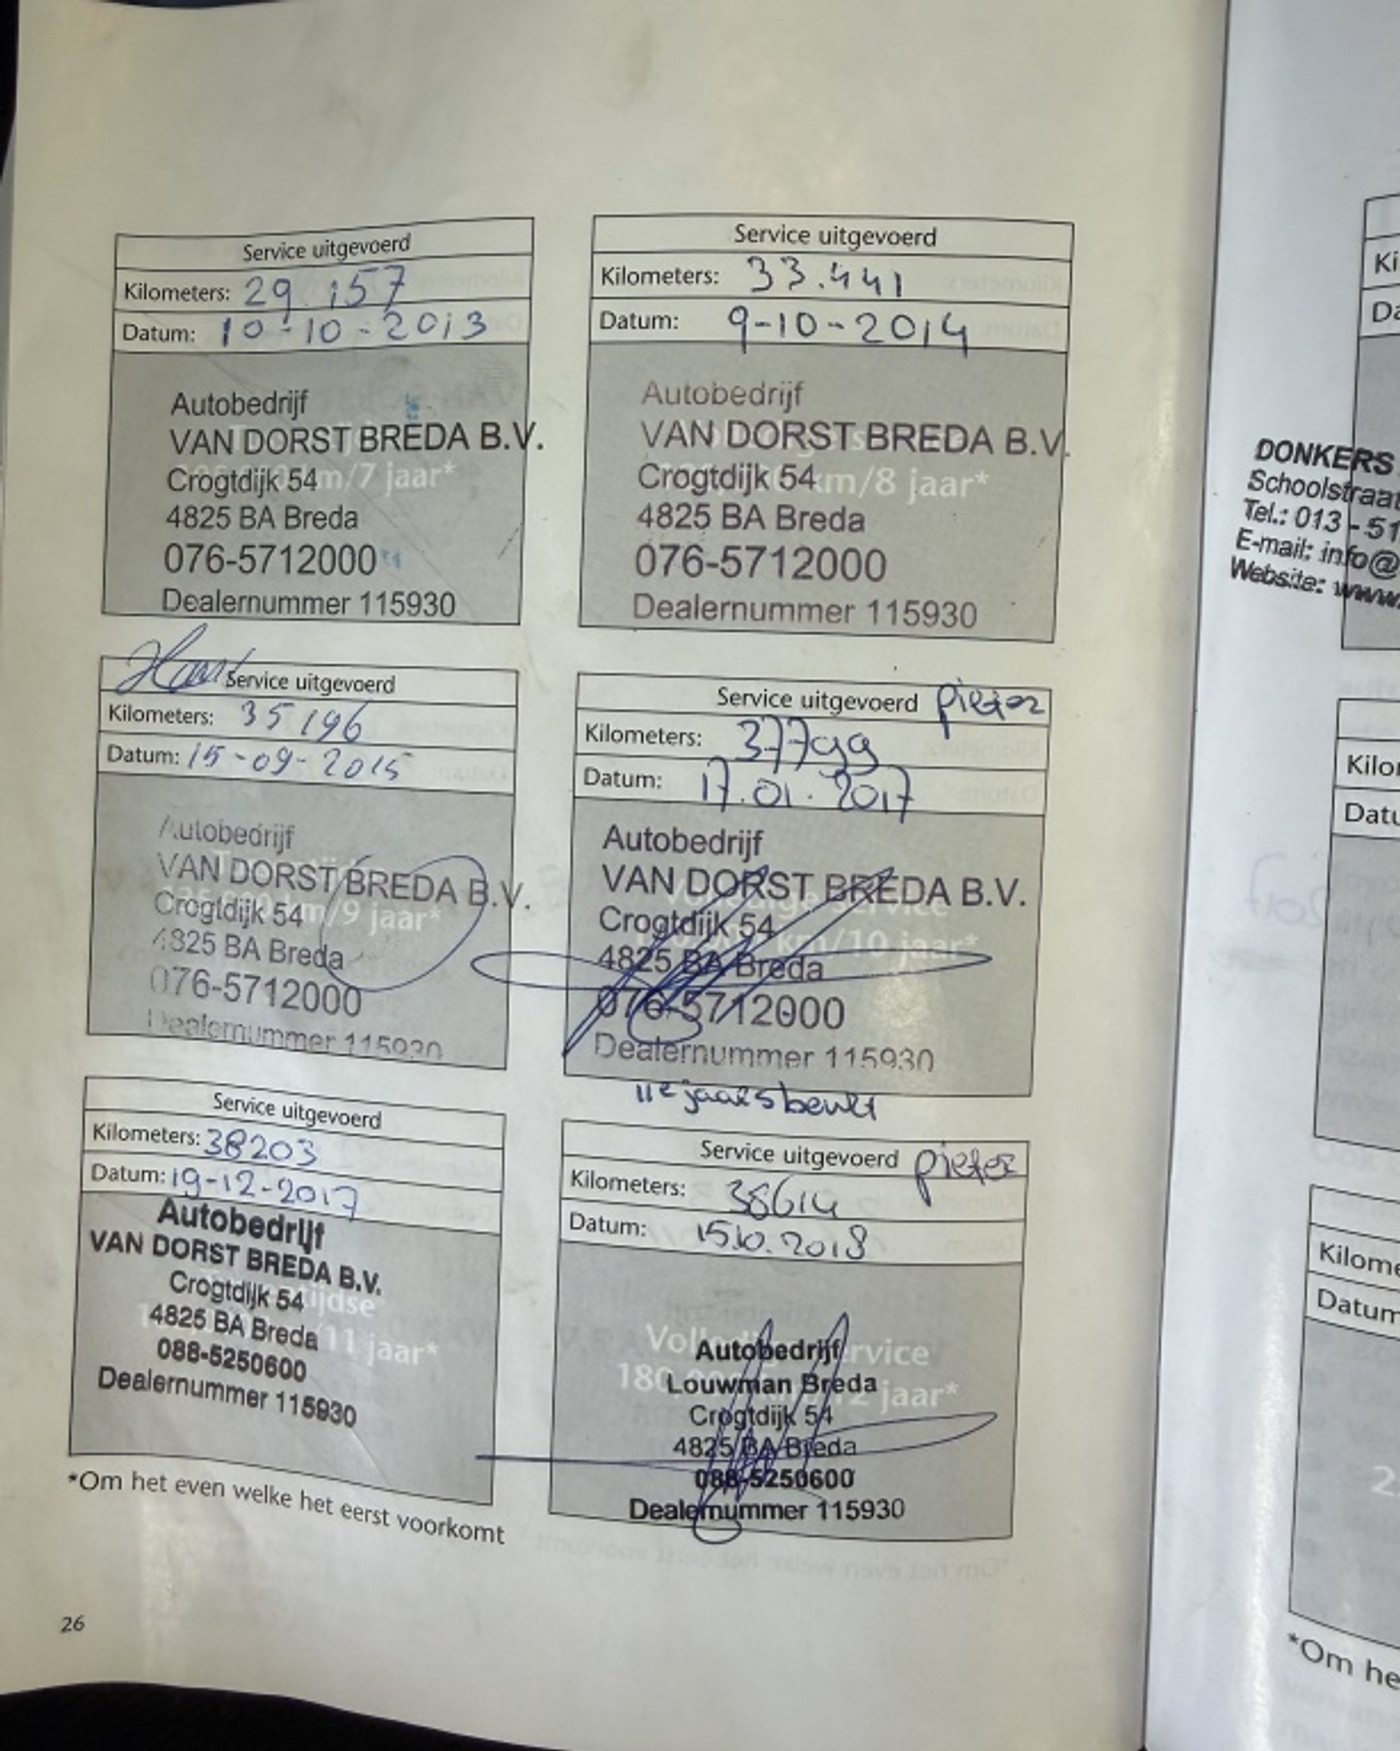 Service uitgevoerd
Kilometers: 29.157
Datum: 10-10-2013
Autobedrijf
VAN DORST BREDA B.V.
Crogtdijk 54 m/7 jaar*
4825 BA Breda
076-5712000
Dealernummer 115930
Service uitgevoerd
Kilometers: 33.441
Datum: 9-10-2014
Autobedrijf
VAN DORST BREDA B.V.
Crogtdijk 54 km/8 jaar*
4825 BA Breda
076-5712000
Dealernummer 115930
Service uitgevoerd
Kilometers: 35196
Datum: 15-09-2015
Autobedrijf
VAN DORST BREDA B.V.
Crogtdijk 54 m/9 jaar*
4825 BA Breda
076-5712000
Dealernummer 115930
Service uitgevoerd pieter
Kilometers: 37799
Datum: 17.01.2017
Autobedrijf
VAN DORST BREDA B.V.
Crogtdijk 54
4825 BA Breda km/10 jaar*
076-5712000
Dealernummer 115930
Service uitgevoerd
Kilometers: 38203
Datum: 19-12-2017
Autobedrijf
VAN DORST BREDA B.V.
Crogtdijk 54
4825 BA Breda /11 jaar*
088-5250600
Dealernummer 115930
11e jaarsbeurt
Service uitgevoerd pieter
Kilometers: 38614
Datum: 15.10.2018
Volledige service
Autobedrijf
Louwman Breda
180 jaar*
Crogtdijk 54
4825 BA Breda
088-5250600
Dealernummer 115930
*Om het even welke het eerst voorkomt
26
DONKERS
Schoolstraat
Tel.: 013 - 51
E-mail: info@
Website: www.
Ki
Da
Kilo
Datu
Kilome
Datum
*Om he